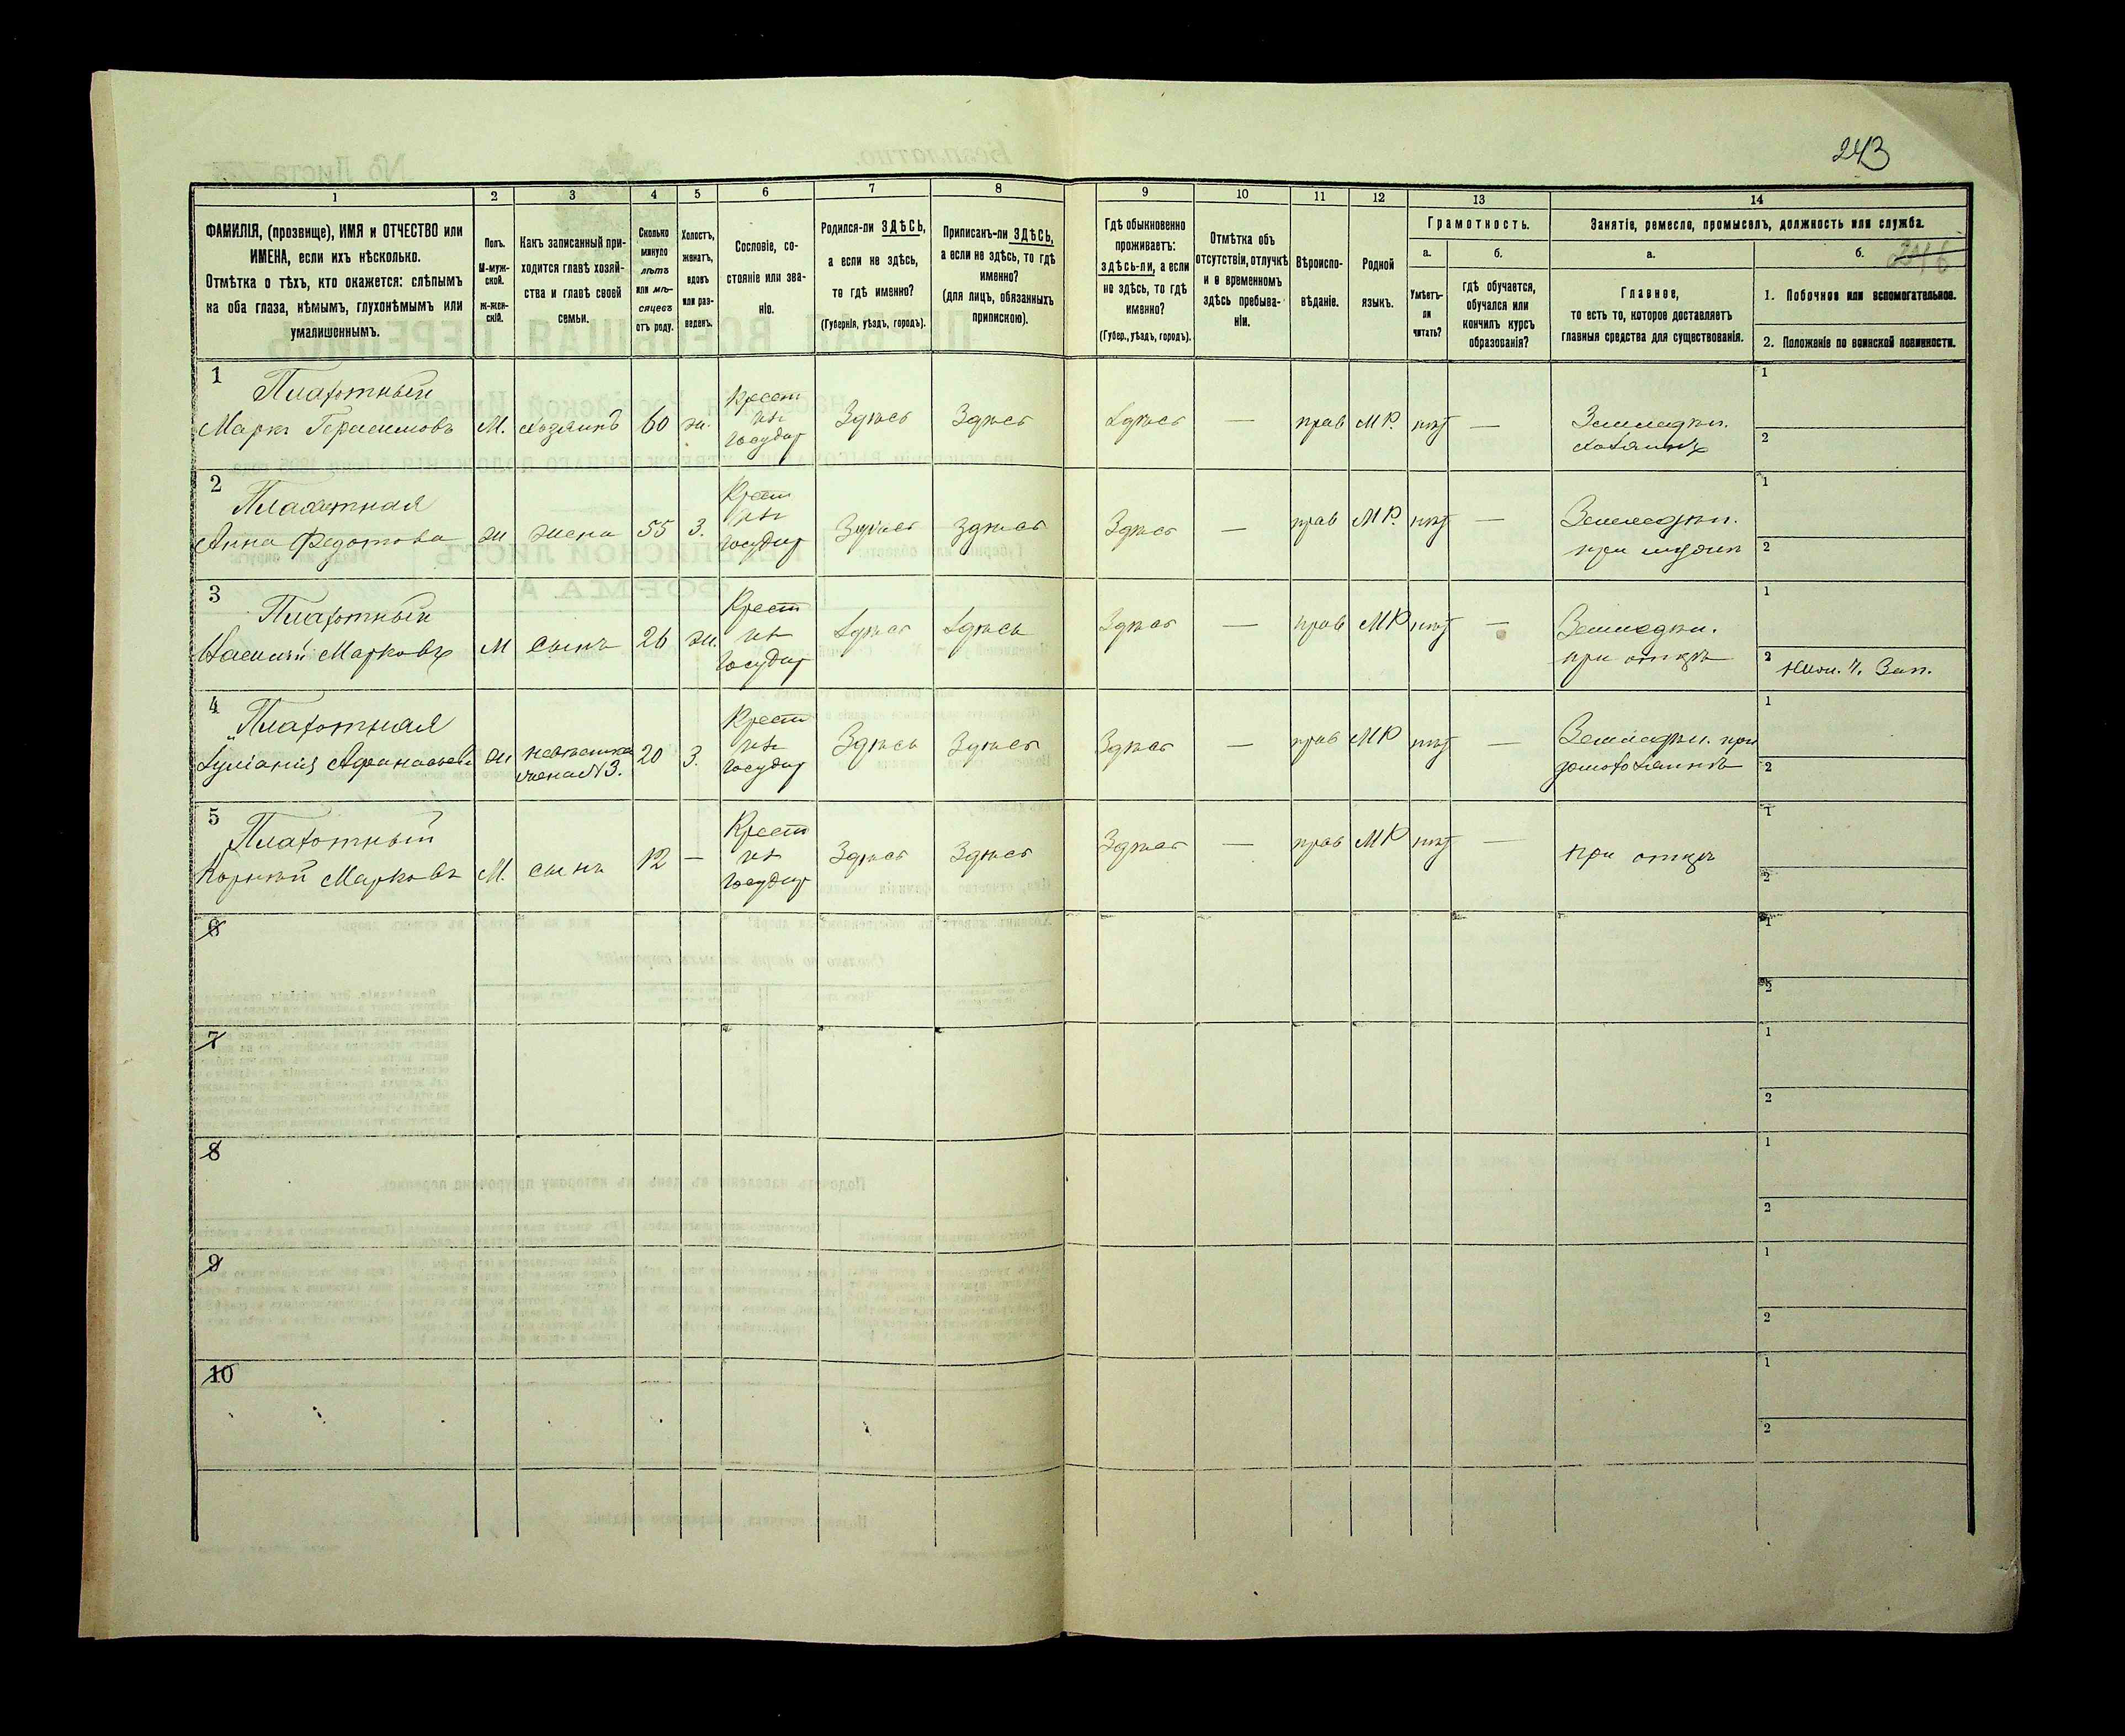 243
1
2
3
4
5
6
7
8
9
10
11
12
13
14
ФАМИЛІЯ, (прозвище), ИМЯ и ОТЧЕСТВО или
ИМЕНА, если ихъ нѣсколько.
Отмѣтка о тѣхъ, кто окажется: слѣпымъ
на оба глаза, нѣмымъ, глухонѣмымъ или
умалишеннымъ.
Полъ.
М-муж-
ской.
ж-жен-
скій.
Какъ записанный при-
ходится главѣ хозяй-
ства и главѣ своей
семьи.
Сколько
минуло
лѣтъ
или мѣ-
сяцевъ
отъ роду.
Холостъ,
женатъ,
вдовъ
или раз-
веденъ.
Сословіе, со-
стояніе или зва-
ніе.
Родился-ли ЗДѢСЬ,
а если не здѣсь,
то гдѣ именно?
(Губернія, уѣздъ, городъ).
Приписанъ-ли ЗДѢСЬ,
а если не здѣсь, то гдѣ
именно?
(для лицъ, обязанныхъ
припискою).
Гдѣ обыкновенно
проживаетъ:
здѣсь-ли, а если
не здѣсь, то гдѣ
именно?
(Губер., уѣздъ, городъ).
Отмѣтка объ
отсутствіи, отлучкѣ
и о временномъ
здѣсь пребыва-
ніи.
Вѣроиспо-
вѣданіе.
Родной
языкъ.
Грамотность.
а.
Умѣетъ-
ли
читать?
б.
гдѣ обучается,
обучался или
кончилъ курсъ
образованія?
Занятіе, ремесло, промыселъ, должность или служба.
а.
Главное,
то есть то, которое доставляетъ
главныя средства для существованія.
б.
1. Побочное или вспомогательное.
2. Положеніе по воинской повинности.
1
Платотный
Маркъ Герасимовъ
М.
хозяинъ
60
ж.
Крест
изъ
государ
Здѣсь
Здѣсь
Здѣсь
—
прав
МР.
нѣт
—
Земледѣл.
хозяинъ
1
2
2
Анна Федотова
ж
жена
55
З.
Крест
изъ
государ
Здѣсь
Здѣсь
Здѣсь
—
прав
МР.
нѣт
—
Земледѣл.
при мужѣ
1
2
3
Платотный
Василий Марковъ
М
сынъ
26
ж.
Крест
изъ
государ
Здѣсь
Здѣсь
Здѣсь
—
прав
МР
нѣт
—
Земледѣл.
при отцѣ
1
2
4
Платотная
ж
невѣстка
жена №3.
20
З.
Крест
изъ
государ
Здѣсь
Здѣсь
Здѣсь
—
прав
МР
нѣт
—
Земледѣл. при
домохозяинѣ
1
2
5
Платотный
Корнѣй Марковъ
М.
сынъ
12
—
Крест
изъ
государ
Здѣсь
Здѣсь
Здѣсь
—
прав
МР
нѣт
—
при отцѣ
1
2
6
1
2
7
1
2
8
1
2
9
1
2
10
1
2